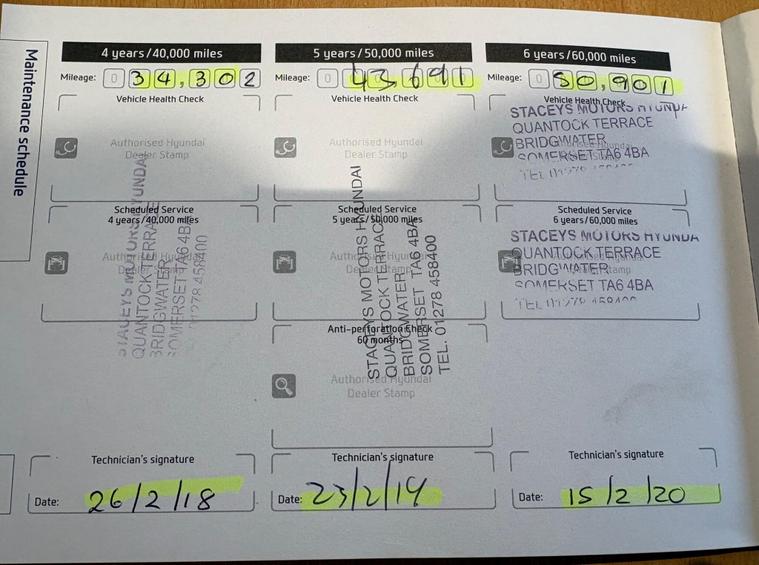 Maintenance schedule
4 years/40,000 miles
Mileage: 034,302
Vehicle Health Check
Authorised Hyundai
Dealer Stamp
Scheduled Service
4 years/40,000 miles
Authorised Hyundai
Dealer Stamp
STACEYS MOTORS HYUNDAI
QUANTOCK TERRACE
BRIDGWATER
SOMERSET TA6 4BA
01278 458400
Technician's signature
Date: 26/2/18
5 years/50,000 miles
Mileage: 0 43,691
Vehicle Health Check
Authorised Hyundai
Dealer Stamp
Scheduled Service
5 years/50,000 miles
Authorised Hyundai
Dealer Stamp
STACEYS MOTORS HYUNDAI
QUANTOCK TERRACE
BRIDGWATER
SOMERSET TA6 4BA
TEL. 01278 458400
Anti-perforation Check
60 months
Authorised Hyundai
Dealer Stamp
Technician's signature
Date: 23/2/19
6 years/60,000 miles
Mileage: 0 50,901
Vehicle Health Check
STACEYS MOTORS HYUNDAI
QUANTOCK TERRACE
BRIDGWATER
SOMERSET TA6 4BA
Scheduled Service
6 years/60,000 miles
STACEYS MOTORS HYUNDAI
QUANTOCK TERRACE
BRIDGWATER
SOMERSET TA6 4BA
TEL 01278 458400
Technician's signature
Date: 15/2/20